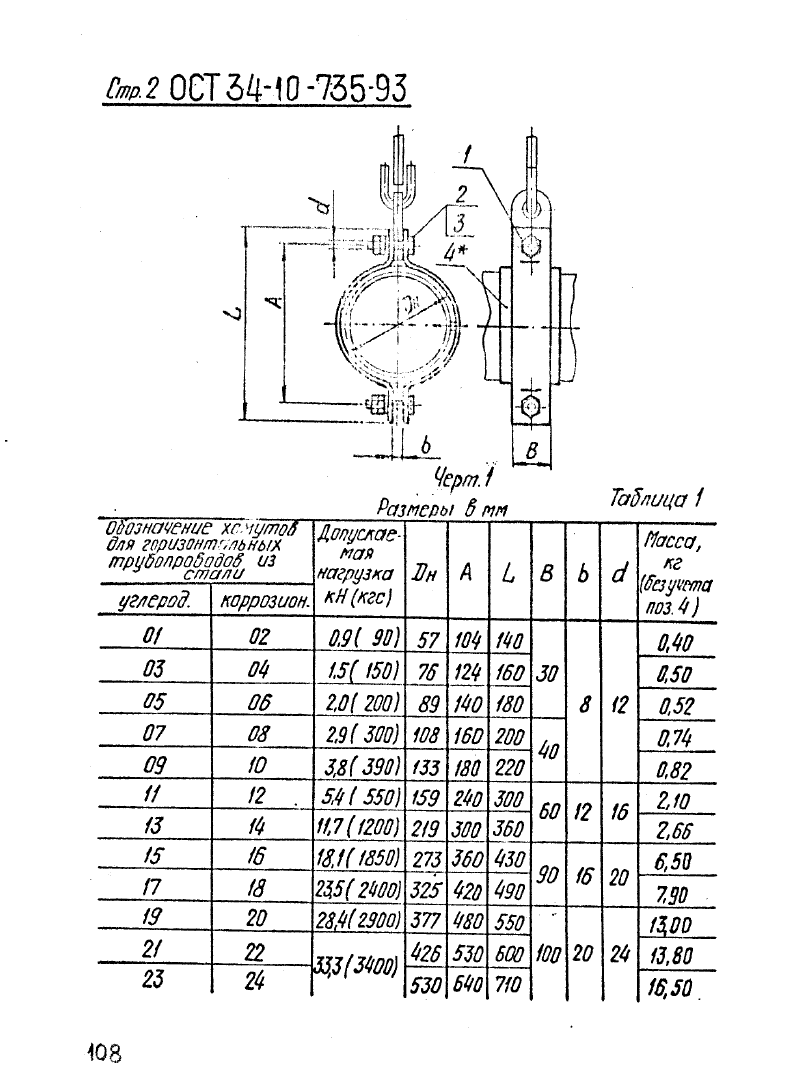 Стр. 2 ОСТ 34-10-735-93
1
2
3
4*
d
L
A
Dн
b
B
Черт. 1
Размеры в мм
Таблица 1
Обозначение хомутов для горизонтальных трубопроводов из стали
Допускаемая нагрузка кН (кгс)
Dн A L B b d
Масса, кг (без учета поз. 4)
углерод. коррозион.
01 02 0,9 ( 90) 57 104 140 30 8 12 0,40
03 04 1.5 ( 150) 76 124 160 0,50
05 06 2,0 ( 200) 89 140 180 0,52
07 08 2,9 ( 300) 108 160 200 40 0,74
09 10 3,8 ( 390) 133 180 220 0,82
11 12 5,4 ( 550) 159 240 300 60 12 16 2,10
13 14 11,7 (1200) 219 300 360 2,66
15 16 18,1 ( 1850) 273 360 430 90 16 20 6,50
17 18 23,5 ( 2400) 325 420 490 7,90
19 20 28,4 ( 2900) 377 480 550 100 20 24 13,00
21 22 33,3 ( 3400) 426 530 600 13,80
23 24 530 640 710 16,50
108